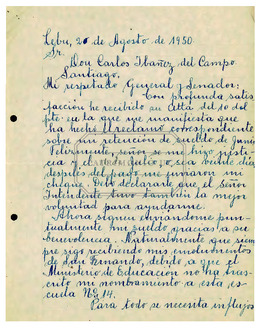 Lebu, 28 de Agosto de 1950
Sr.
Don Carlos Ibañez del Campo.
Santiago.
Mi respetado General y Senador:
Con profunda satis
facción he recibido su atta del 10 del
pte. en la que me manifiesta que
ha hecho el reclamo correspondiente
sobre mi retención de sueldo de Junio
Felizmente, señor se me hizo justi-
cia y el de Julio, o sea veinte días
despues del pago me enviaron mi
cheque. Debo declararle que el Señor
Intendente tuvo tambien la mejor
voluntad para ayudarme.
Ahora siguen enviándome pun-
tualmente mi sueldo gracias a su
benevolencia. Naturalmente que siem
pre sigo recibiendo mis emolumentos
de San Fernando, debido a que el
Ministerio de Educación no ha trans-
crito mi nombramiento a esta es-
cuela Nº 14.
Para todo se necesita influjos